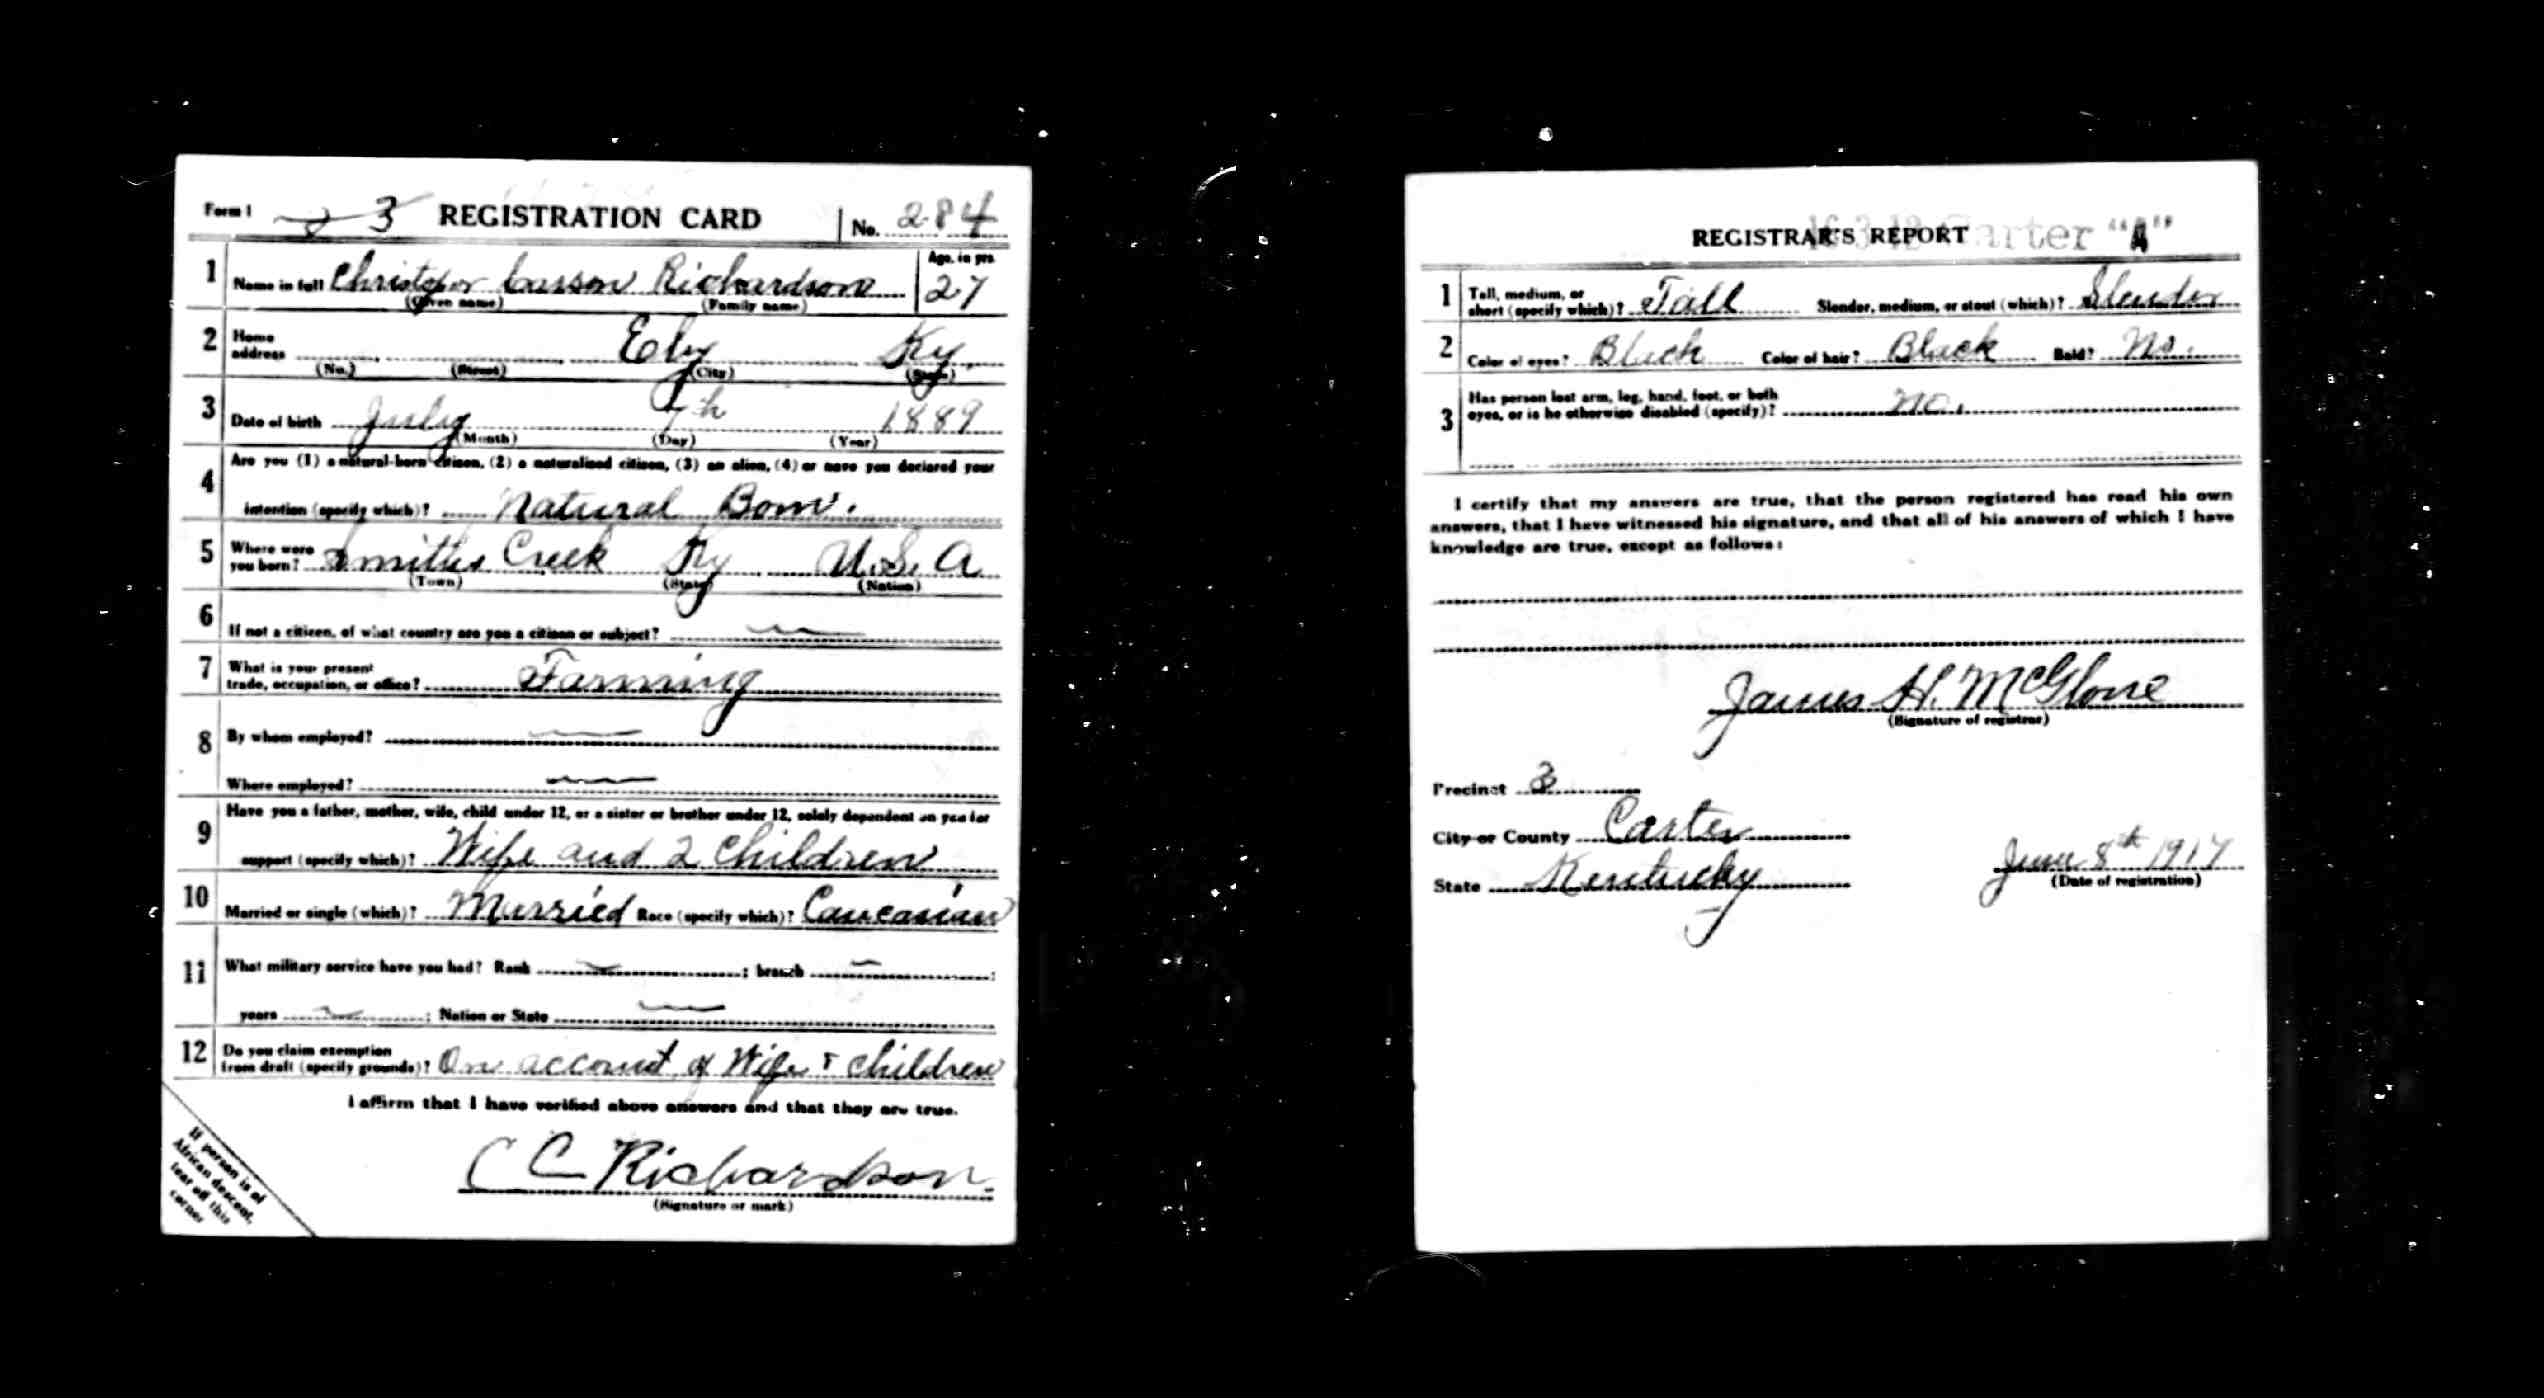 Form 1 3 REGISTRATION CARD No. 284
1 Name in full Christopher Carson Richardson Age, in yrs. 27
(Given name) (Family name)
2 Home address Ely Ky
(No.) (Street) (City) (State)
3 Date of birth July 7th 1889
(Month) (Day) (Year)
4 Are you (1) a natural-born citizen, (2) a naturalized citizen, (3) an alien, (4) or have you declared your
intention (specify which)? Natural Born.
5 Where were you born? Smiths Creek Ky U.S.A
(Town) (State) (Nation)
6 If not a citizen, of what country are you a citizen or subject? —
7 What is your present
trade, occupation, or office? Farming
8 By whom employed? —
Where employed? —
9 Have you a father, mother, wife, child under 12, or a sister or brother under 12, solely dependent on you for
support (specify which)? Wife and 2 Children
10 Married or single (which)? Married Race (specify which)? Caucasian
11 What military service have you had? Rank — ; branch — ;
years — ; Nation or State —
12 Do you claim exemption
from draft (specify grounds)? On account of Wife & Children
I affirm that I have verified above answers and that they are true.
C C Richardson.
(Signature or mark)
If person is of
African descent,
tear off this
corner
REGISTRAR'S REPORT Carter "A"
1 Tall, medium, or
short (specify which)? Tall Slender, medium, or stout (which)? Slender
2 Color of eyes? Black Color of hair? Black Bald? No.
3 Has person lost arm, leg, hand, foot, or both
eyes, or is he otherwise disabled (specify)? no.
I certify that my answers are true, that the person registered has read his own
answers, that I have witnessed his signature, and that all of his answers of which I have
knowledge are true, except as follows:
James H. McGlone
(Signature of registrar)
Precinct 3
City or County Carter
State Kentucky June 8th 1917
(Date of registration)